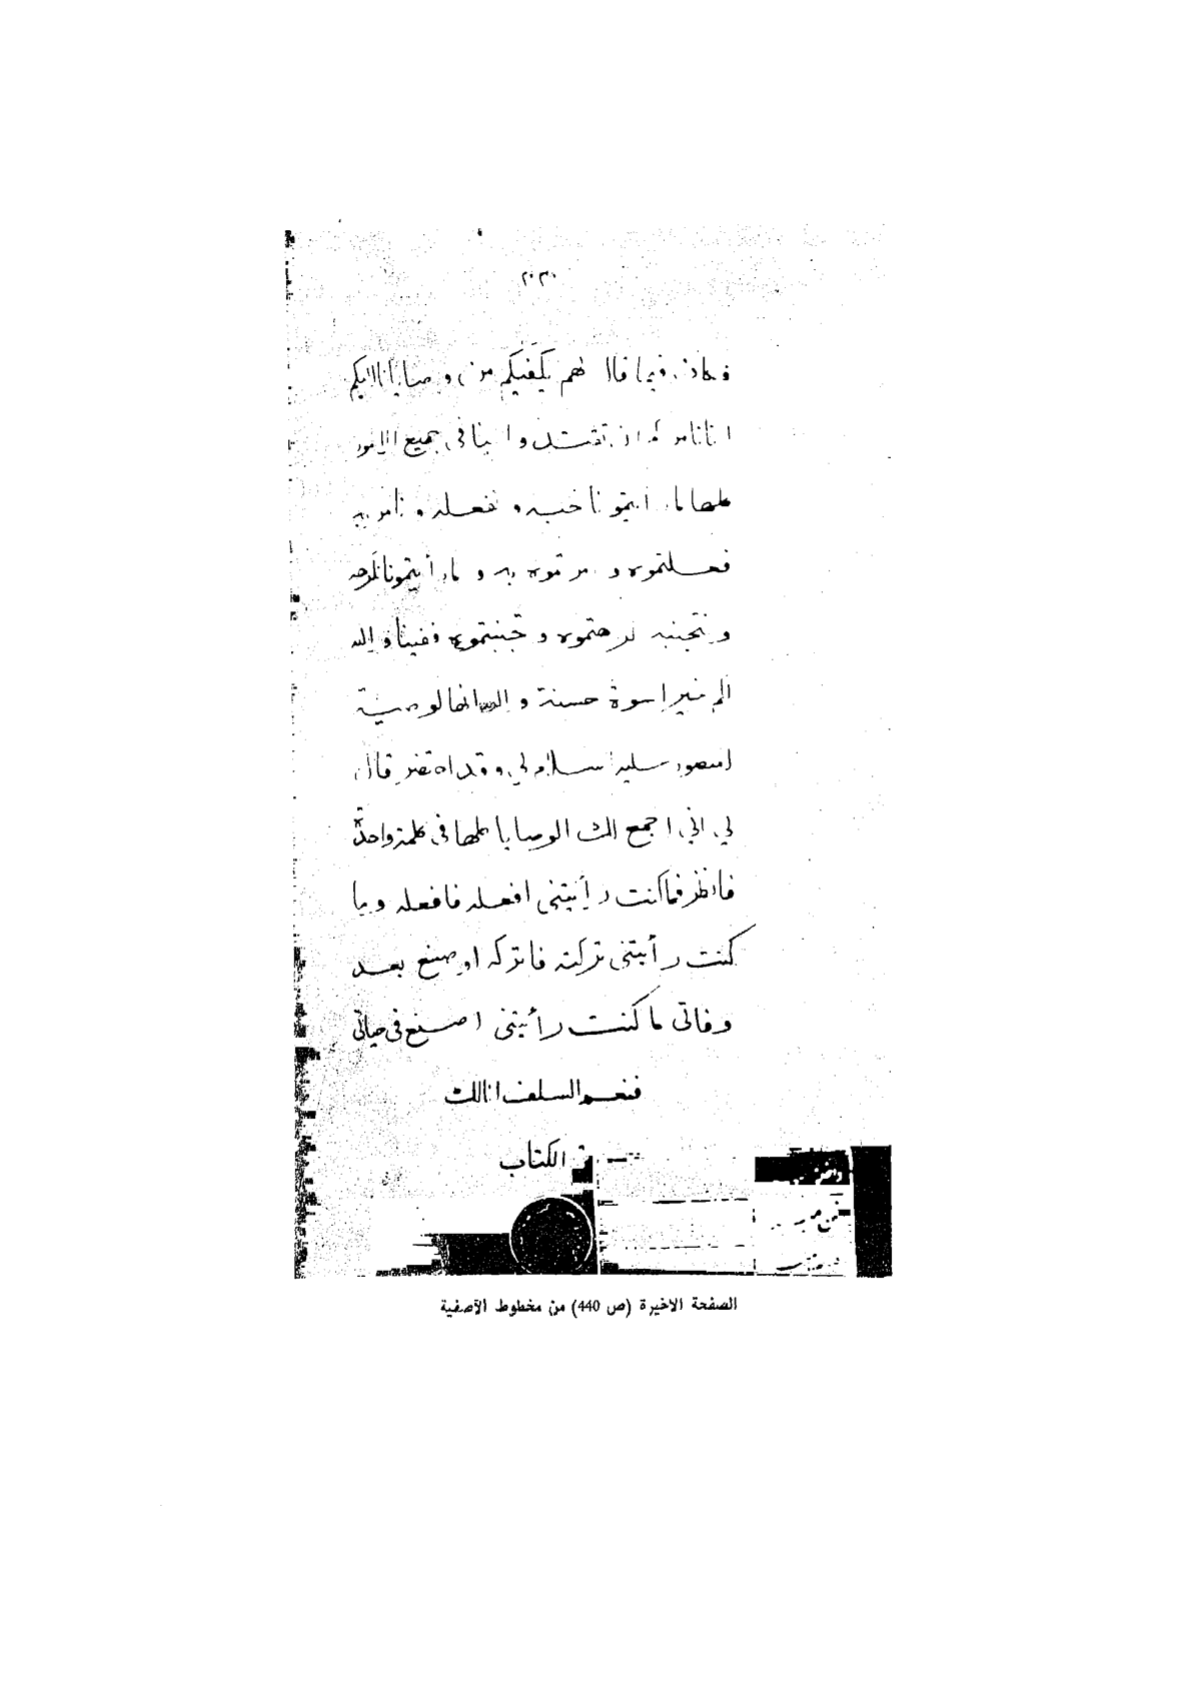 فكان فيما قال لهم يكفيكم من وصايانا اليكم
اننا نامركم ان تقتدوا بنا في جميع الامور
كلها ما رأيتمونا نحبه ونفعله ونامر به
فعلتموه وامرتموه به وما رأيتمونا نكرهه
ونتجنبه كرهتموه وتجنبتموه ففينا والله
الم نير اسوة حسنة والله انها لوصية
المنصور سليم لي وقد احتضر قال
لي اني اجمع لك الوصايا كلها في كلمة واحدة
فانظر فما كنت رأيتني افعله فافعله وما
كنت رأيتني تركته فاتركه اوصنع بعد
وفاتي ما كنت رأيتني اصنع في حياتي
فنعم السلف انا لك
الكتاب
الصفحة الاخيرة (ص 440) من مخطوط الآصفية